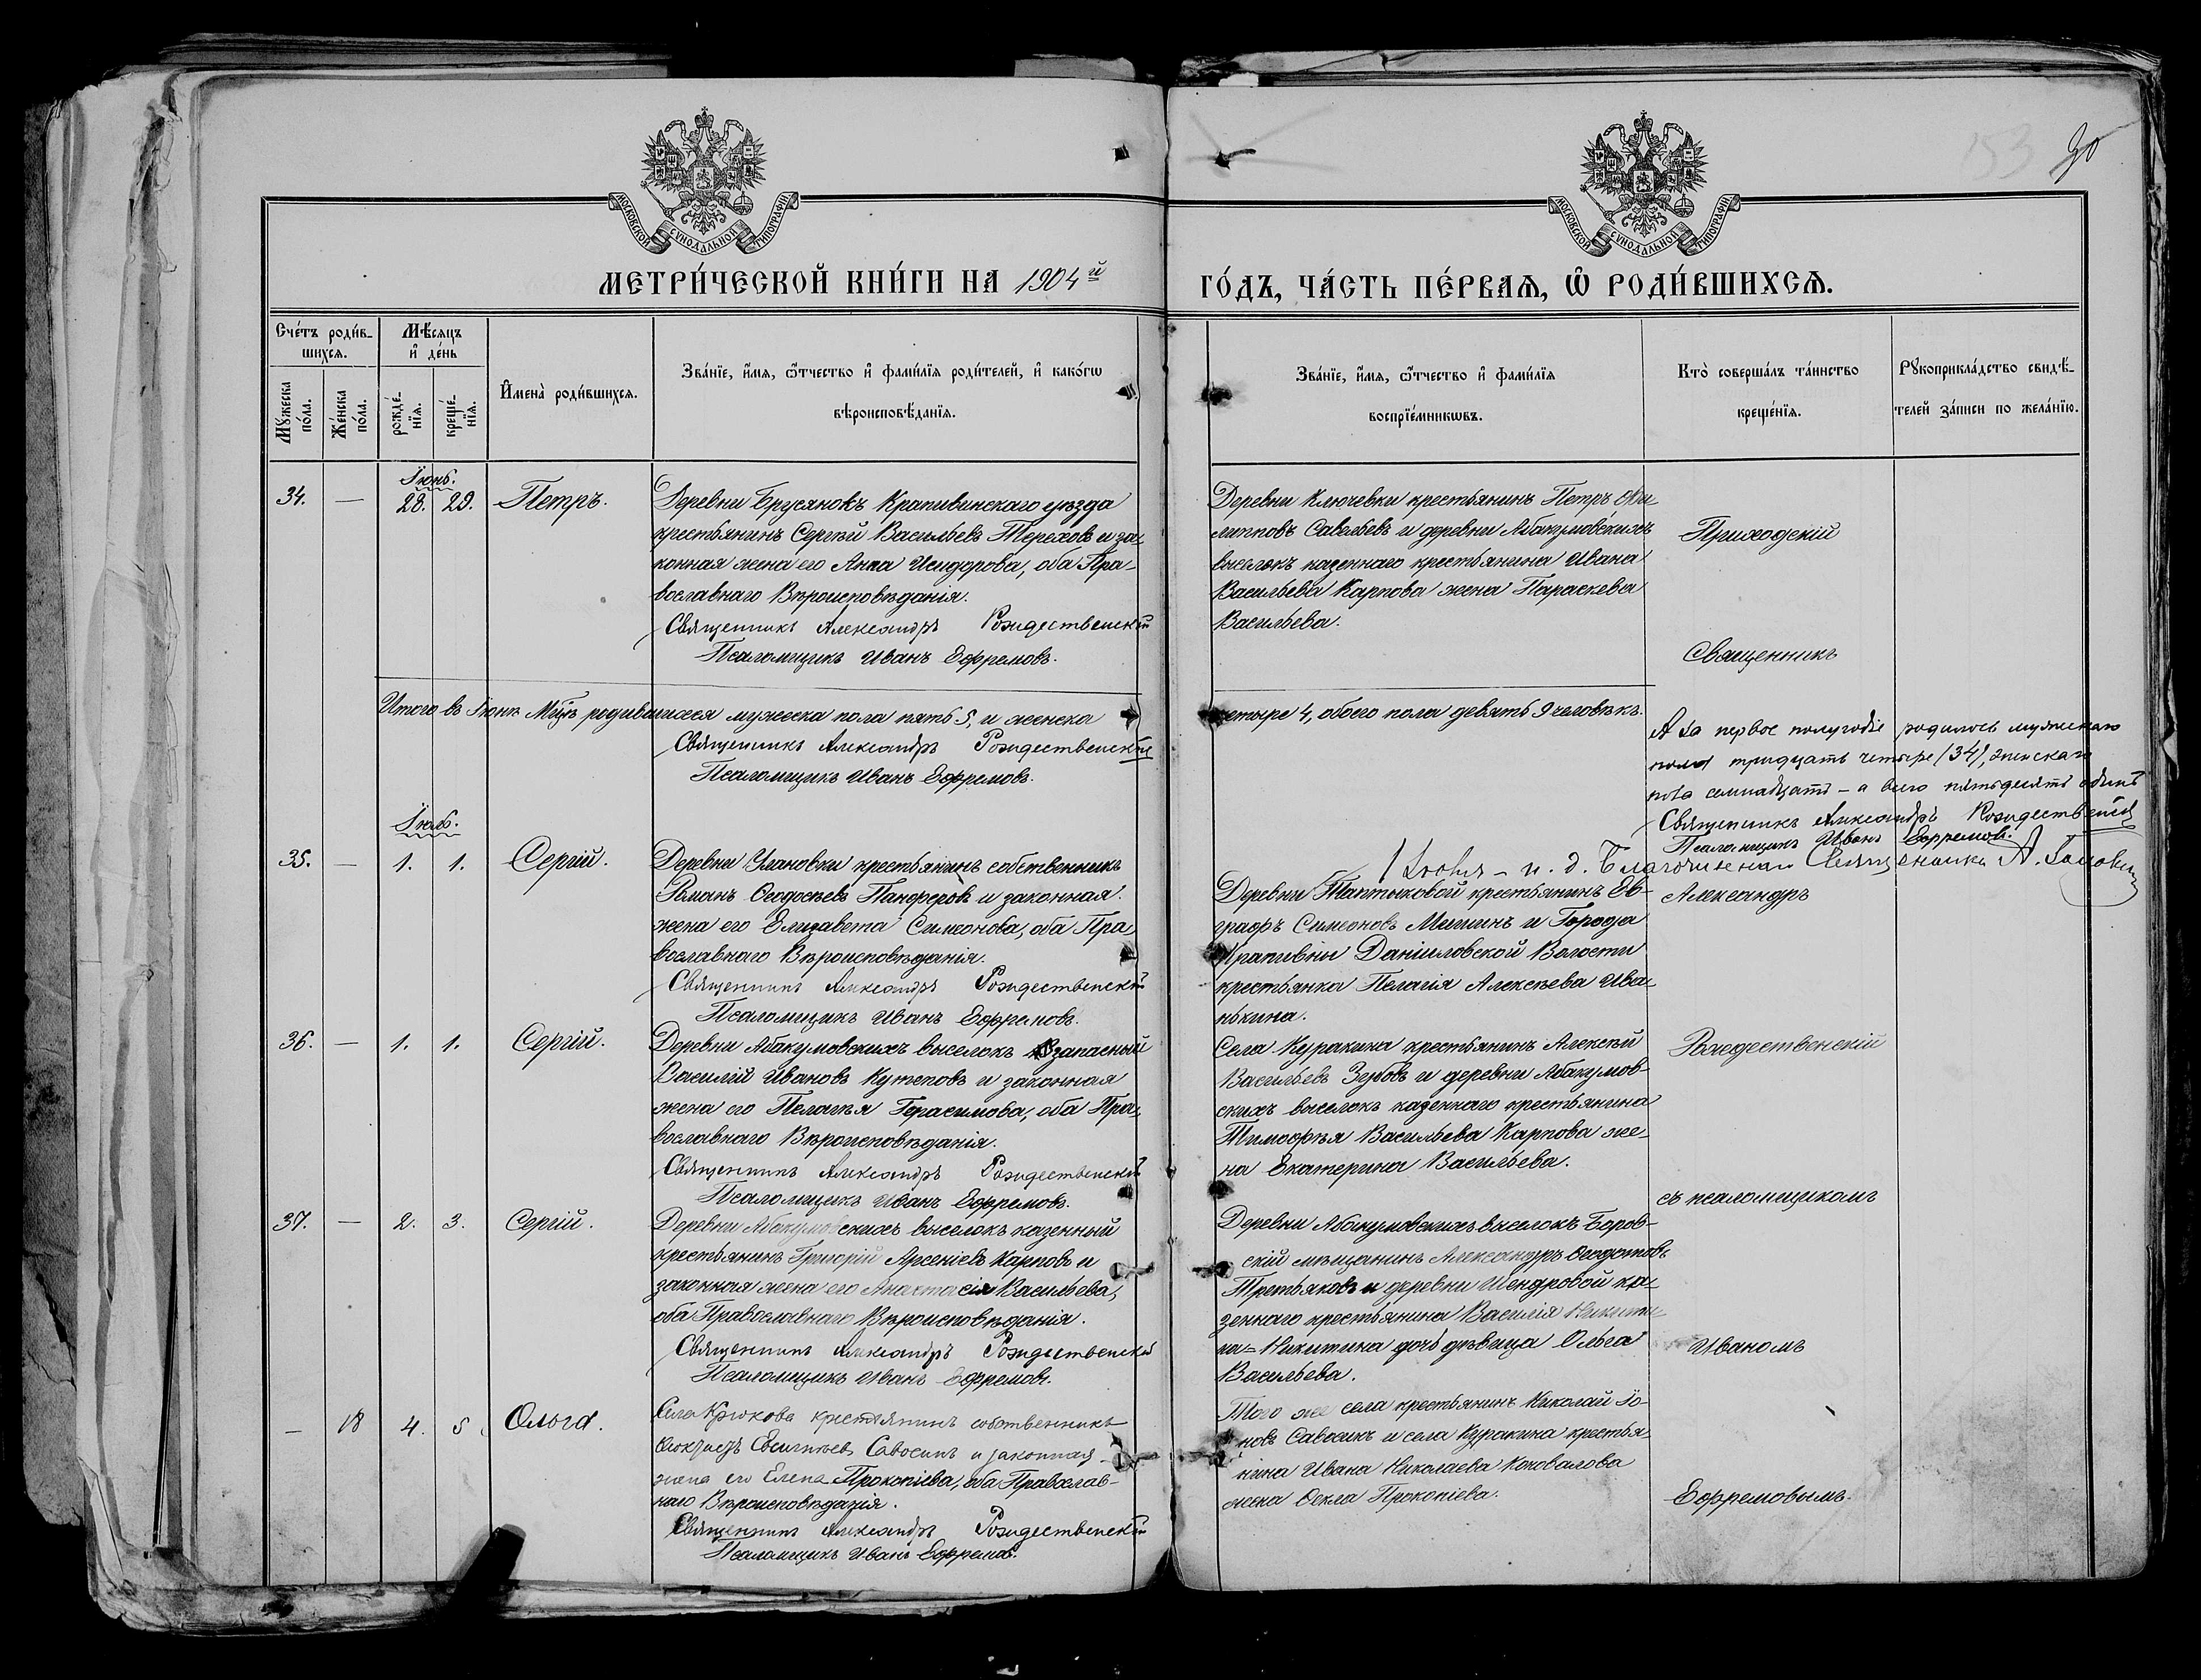 153 90
МОСКОВСКОЙ СѴНОДАЛЬНОЙ ТИПОГРАФІИ
МОСКОВСКОЙ СѴНОДАЛЬНОЙ ТИПОГРАФІИ
МЕТРИ́ЧЕСКОЙ КНИ́ГИ НА 1904й ГО́ДЪ, ЧА́СТЬ ПЕ́РВАѦ, Ѽ РОДИ́ВШИХСѦ.
Сче́тъ роди́в-
шихсѧ.
Мꙋ́жеска по́ла.
Же́нска по́ла.
Мѣ́сѧцъ
и҆ де́нь
рожде́-
нїѧ.
креще́-
нїѧ.
И҆мена̀ роди́вшихсѧ.
Зва́нїе, и҆́мѧ, ѻ҆́тчество и҆ фами́лїѧ роди́телей, и҆ како́гѡ
вѣроисповѣ́данїѧ.
Зва́нїе, и҆́мѧ, ѻ҆́тчество и҆ фами́лїѧ
воспрїе́мникѡвъ.
Кто̀ соверша́лъ та́инство
креще́нїѧ.
Рꙋкоприкла́дство свидѣ́-
телей за́писи по жела́нїю.
Іюнь.
34. — 28. 29. Петръ.
Деревни Брусянокъ Крапивинскаго уѣзда
крестьянинъ Сергѣй Васильевъ Тереховъ и за-
конная жена его Анна Исидорова, оба Пра-
вославнаго Вѣроисповѣданія.
Священникъ Александръ Рождественскій
Псаломщикъ Иванъ Ефремовъ.
Деревни Ключевки крестьянинъ Петръ Фи-
липповъ Савельевъ и деревни Абакумовскихъ
выселокъ казеннаго крестьянина Ивана
Васильева Карпова жена Параскева
Васильева.
Приходскій
Священникъ
Итого въ Іюнѣ Мцѣ родившихся мужеска пола пять 5, и женска
четыре 4, обоего пола девять 9 человѣкъ.
Священникъ Александръ Рождественскій
Псаломщикъ Иванъ Ефремовъ.
А за первое полугодіе родилось мужескаго
пола тридцать четыре (34), женскаго
пола семнадцать – а всего пятьдесятъ одинъ
Священникъ Александръ Рождественскій
Псаломщикъ Иванъ Ефремовъ.
и. д. Благочиннаго Священникъ А.
Іюль.
35. — 1. 1. Сергій.
Деревни Улановки крестьянинъ собственникъ
Романъ Ѳеодосьевъ Панферовъ и законная
жена его Елизавета Симеонова, оба Пра-
вославнаго Вѣроисповѣданія.
Священникъ Александръ Рождественскій
Псаломщикъ Иванъ Ефремовъ.
Деревни Таптыковой крестьянинъ Ев-
графъ Симеоновъ Мишинъ и Города
Крапивны Даниловской Волости
крестьянка Пелагія Алексѣева Ива-
нькина.
Александръ
36. — 1. 1. Сергій.
Деревни Абакумовскихъ выселокъ запасный
Василій Ивановъ Кутеповъ и законная
жена его Пелагія Герасимова, оба Пра-
вославнаго Вѣроисповѣданія.
Священникъ Александръ Рождественскій
Псаломщикъ Иванъ Ефремовъ.
Села Куракина крестьянинъ Алексѣй
Васильевъ Зубовъ и деревни Абакумов-
скихъ выселокъ казеннаго крестьянина
Тимоѳея Васильева Карпова же-
на Екатерина Васильева.
Рождественскій
съ псаломщикомъ
37. — 2. 3. Сергій.
Деревни Абакумовскихъ выселокъ казенный
крестьянинъ Григорій Арсеніевъ Карповъ и
законная жена его Анастасія Васильева,
оба Православнаго Вѣроисповѣданія.
Священникъ Александръ Рождественскій
Псаломщикъ Иванъ Ефремовъ.
Деревни Абакумовскихъ выселокъ Боров-
скій мѣщанинъ Александръ Ѳеодотовъ
Третьяковъ и деревни Шендровой ка-
зеннаго крестьянина Василія Никити-
на Никитина дочь дѣвица Ольга
Васильева.
Иваномъ
— 18 4. 5. Ольга.
Села Крюкова крестьянинъ собственникъ
Савосинъ и законная
жена его Елена Прокопіева, оба Православ-
наго Вѣроисповѣданія.
Священникъ Александръ Рождественскій
Псаломщикъ Иванъ Ефремовъ.
Того же села крестьянинъ Николай Іо-
новъ Савосинъ и села Куракина крестья-
нина Ивана Николаева Коновалова
жена Ѳекла Прокопіева.
Ефремовымъ.